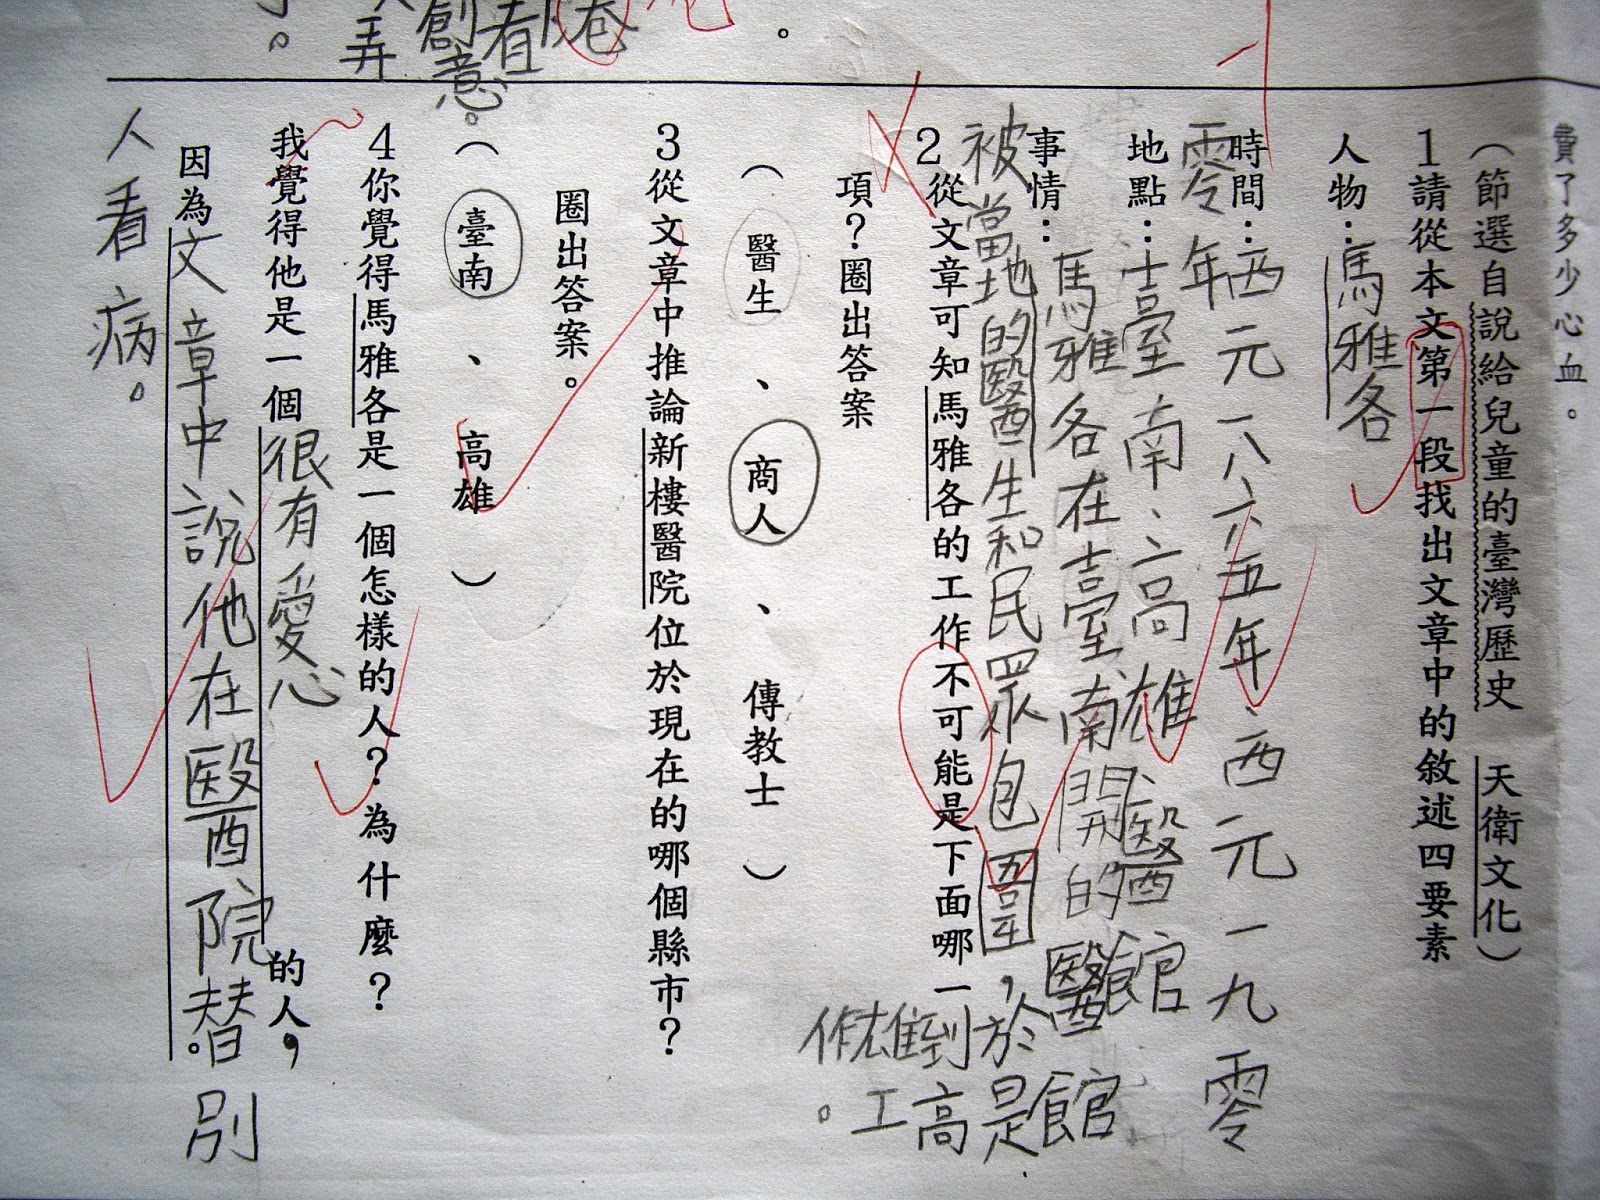 費了多少心血。
（節選自說給兒童的臺灣歷史　天衛文化）
1請從本文第一段找出文章中的敘述四要素
人物：馬雅各
時間：西元一八六五年、西元一九零
零年
地點：臺南、高雄、醫館
事情：馬雅各在臺南開的醫館
被當地的醫生和民眾包圍，於是
到高雄工作。
2從文章可知馬雅各的工作不可能是下面哪一
項？圈出答案
（醫生、商人、傳教士）
3從文章中推論新樓醫院位於現在的哪個縣市？
圈出答案。
（臺南、高雄）
4你覺得馬雅各是一個怎樣的人？為什麼？
我覺得他是一個很有愛心的人，
因為文章中說他在醫院替別
人看病。
創意。
弄
看